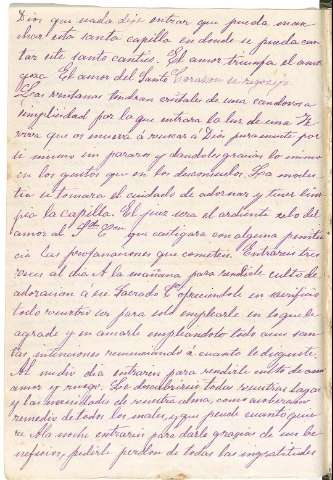 Dios que nada deje entrar que pueda man-
char esta santa capilla en donde se pueda can-
tar este santo cantico. El amor triumfa el amor
goza El amor del Santo Corazon se regocija
Las ventanas tendran cristales de una candorosa
simplicidad por lo que entrara la luz de una
que os mueva á buscar á Dios puramente por
si mismo sin pararos y dandole gracias lo mismo
en los gustos que en los desconsuelos. La modes-
tia se tomara el cuidado de adornar y tener lim-
pia la capilla. El juez sera el ardiente celo del
amor al Sdo Czon que castigara con alguna peniten
cia las profanaciones que cometeis. Entrareis tres
veces al dia A la mañana para rendirle culto de
adoracion á ese Sacrado Cn ofreciendole en sacrificio
todo vuestro ser para solo emplearle en lo que le
agrade y en amarle empleandolo todo a sus san-
tas, intenciones renunciando á cuanto le disguste.
Al medio dia entrareis para rendirle culto de
amor y ruego. Le descubrireis todas vuestras llagas
y las necesidades de vuestra alma, como a soberano
remedio de todos los males, y que puede cuanto quie-
re. A la noche entrareis para darle gracias de sus be-
neficios, pedirle perdon de todas las ingratitudes